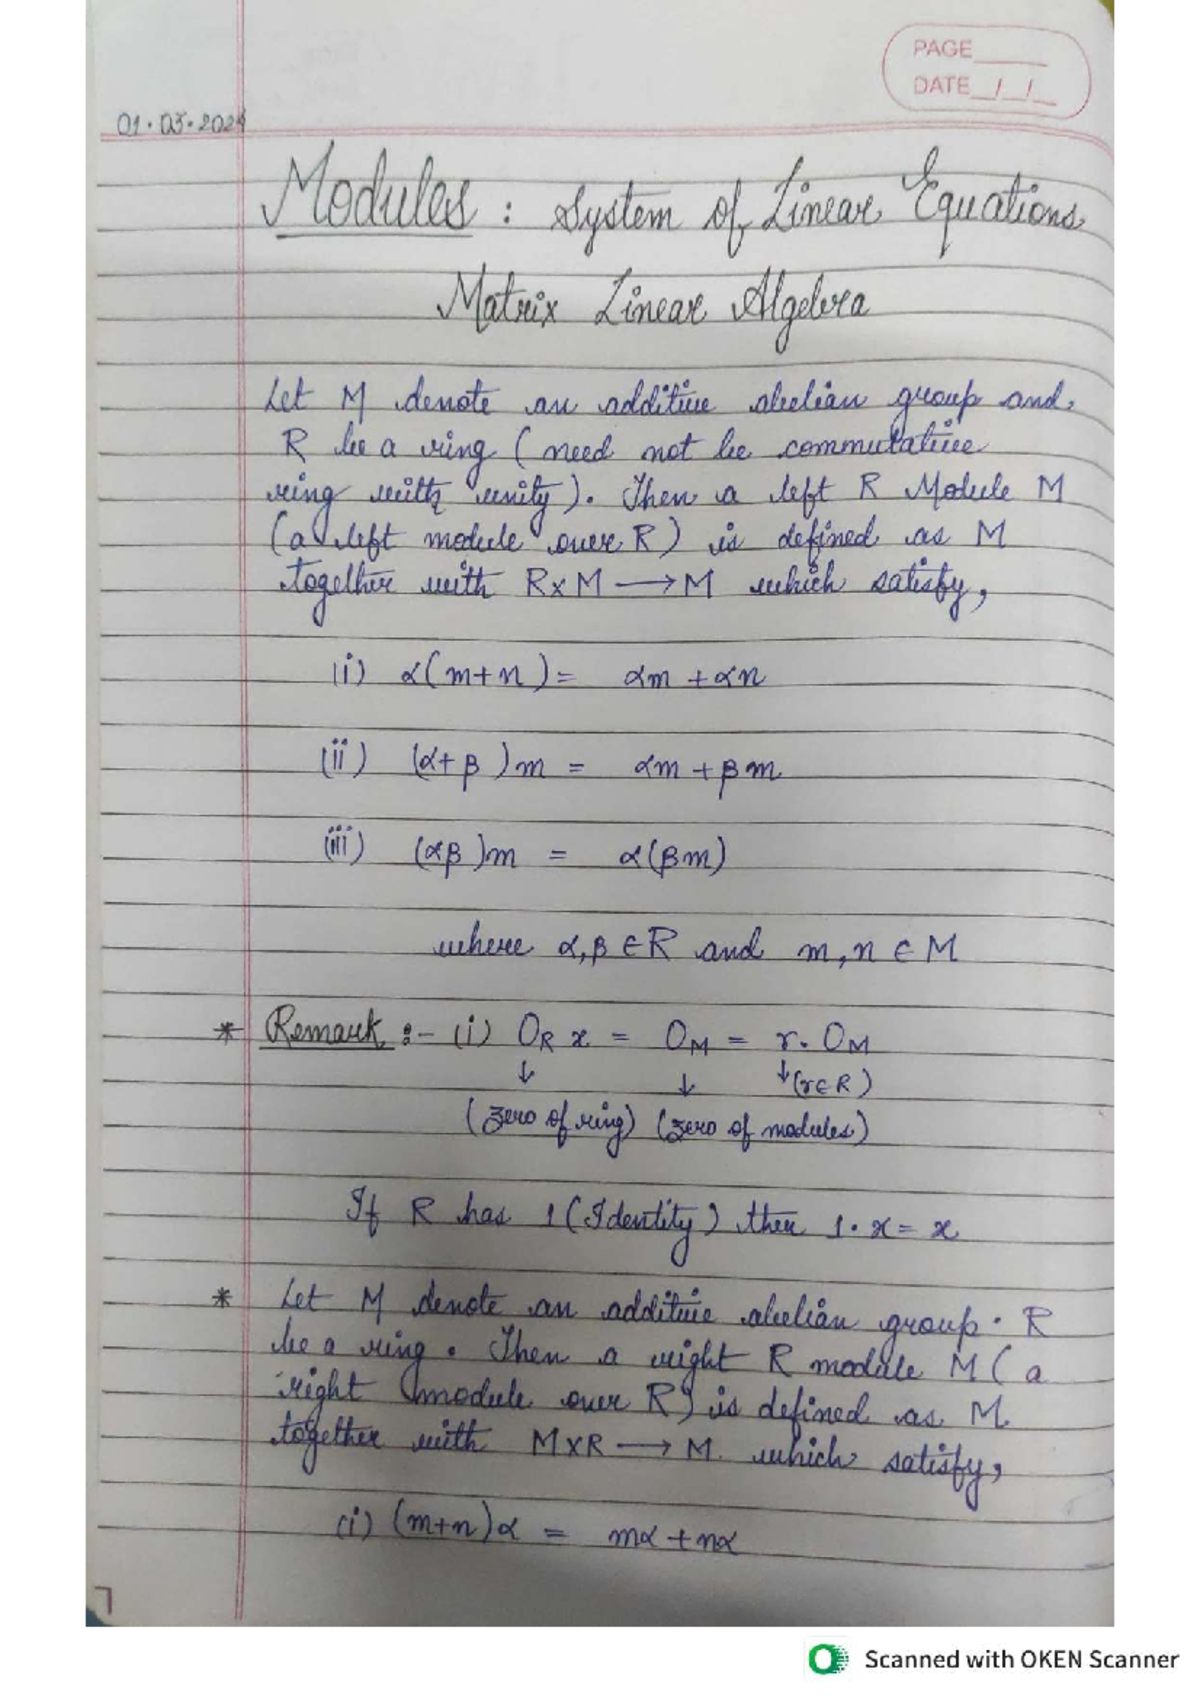 PAGE
DATE / /
01.03.2024
Modules : System of Linear Equations
Matrix Linear Algebra
Let M denote an additive abelian group and
R be a ring (need not be commutative
ring with unity). Then a left R Module M
(a left module over R) is defined as M
together with R×M ⟶ M which satisfy,
(i) α(m+n) = αm + αn
(ii) (α+β)m = αm + βm
(iii) (αβ)m = α(βm)
where α,β ∈ R and m,n ∈ M
* Remark :- (i) O_R x = O_M = r. O_M
↓ ↓ ↓ (r∈R)
(zero of ring) (zero of modules)
If R has 1 (Identity) then 1. x = x
* Let M denote an additive abelian group. R
be a ring. Then a right R module M (a
right module over R) is defined as M
together with M×R ⟶ M. which satisfy,
(i) (m+n)α = mα + nα
Scanned with OKEN Scanner